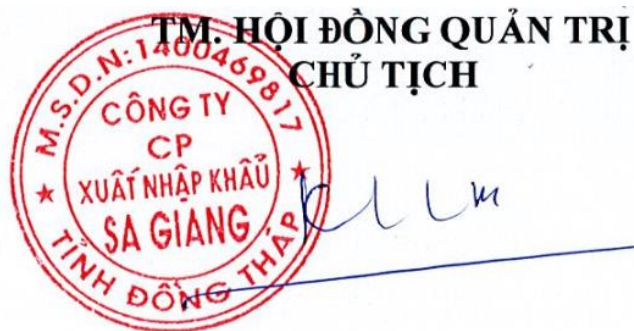 TM. HỘI ĐỒNG QUẢN TRỊ
CHỦ TỊCH
M.S.D.N:1400469817
CÔNG TY
CP
XUẤT NHẬP KHẨU
SA GIANG
TỈNH ĐỒNG THÁP